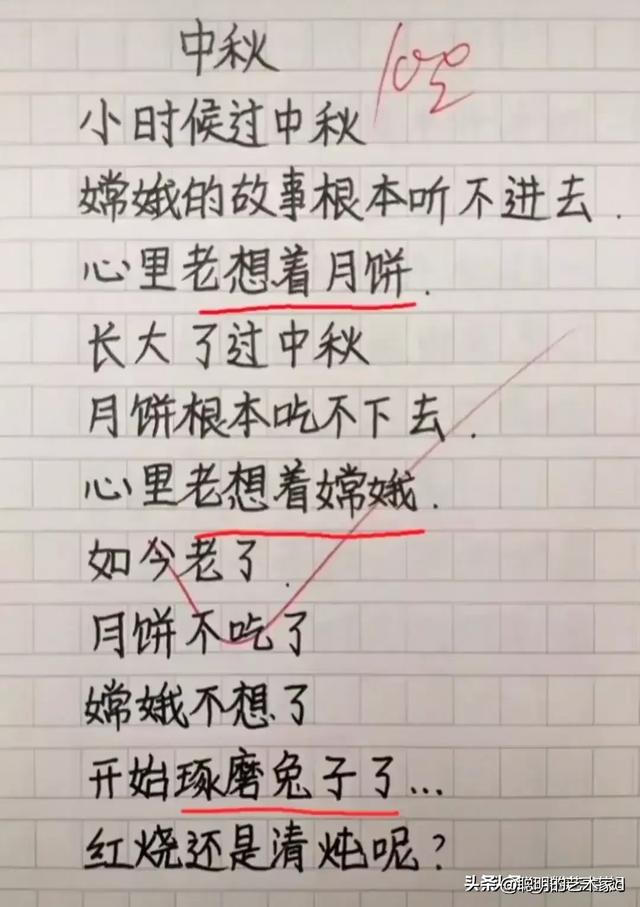 中秋
100
小时候过中秋
嫦娥的故事根本听不进去.
心里老想着月饼.
长大了过中秋
月饼根本吃不下去.
心里老想着嫦娥.
如今老了.
月饼不吃了
嫦娥不想了
开始琢磨兔子了...
红烧还是清炖呢?
头条 @聪明的艺术家